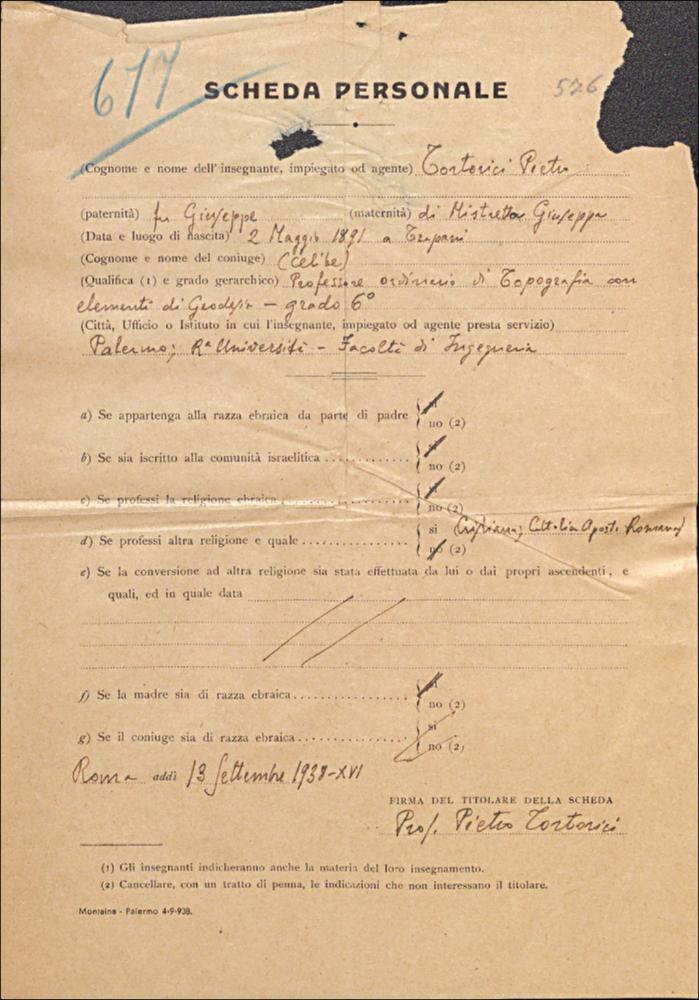 677
SCHEDA PERSONALE
526
(Cognome e nome dell'insegnante, impiegato od agente) Tortorici Pietro
(paternità) fu Giuseppe (maternità) di Mistretta Giuseppa
(Data e luogo di nascita) 2 Maggio 1891 a Trapani
(Cognome e nome del coniuge) (Celibe)
(Qualifica (1) e grado gerarchico) Professore ordinario di Topografia con
elementi di Geodesia - grado 6°
(Città, Ufficio o Istituto in cui l'insegnante, impiegato od agente presta servizio)
Palermo; Ra Università - Facoltà di Ingegneria
a) Se appartenga alla razza ebraica da parte di padre si
no (2)
b) Se sia iscritto alla comunità israelitica si
no (2)
c) Se professi la religione ebraica si
no (2)
d) Se professi altra religione e quale si Cristiana; Cattolica Apost. Romana
no (2)
e) Se la conversione ad altra religione sia stata effettuata da lui o dai propri ascendenti, e
quali, ed in quale data
f) Se la madre sia di razza ebraica si
no (2)
g) Se il coniuge sia di razza ebraica si
no (2)
Roma addì 13 Settembre 1938-XVI
FIRMA DEL TITOLARE DELLA SCHEDA
Prof. Pietro Tortorici
(1) Gli insegnanti indicheranno anche la materia del loro insegnamento.
(2) Cancellare, con un tratto di penna, le indicazioni che non interessano il titolare.
Montaina - Palermo 4-9-938.